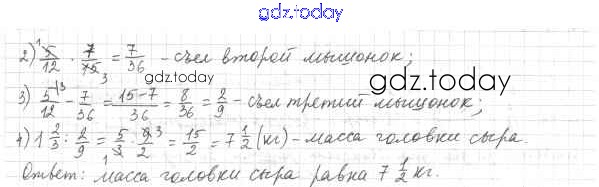 gdz.today
2) 5/12 · 7/15 = 7/36 - съел второй мышонок;
gdz.today
gdz.today
3) 5/12 - 7/36 = (15-7)/36 = 8/36 = 2/9 - съел третий мышонок;
4) 1 2/3 : 2/9 = 5/3 · 9/2 = 15/2 = 7 1/2 (кг) - масса головки сыра.
Ответ: масса головки сыра равна 7 1/2 кг.
gdz.today